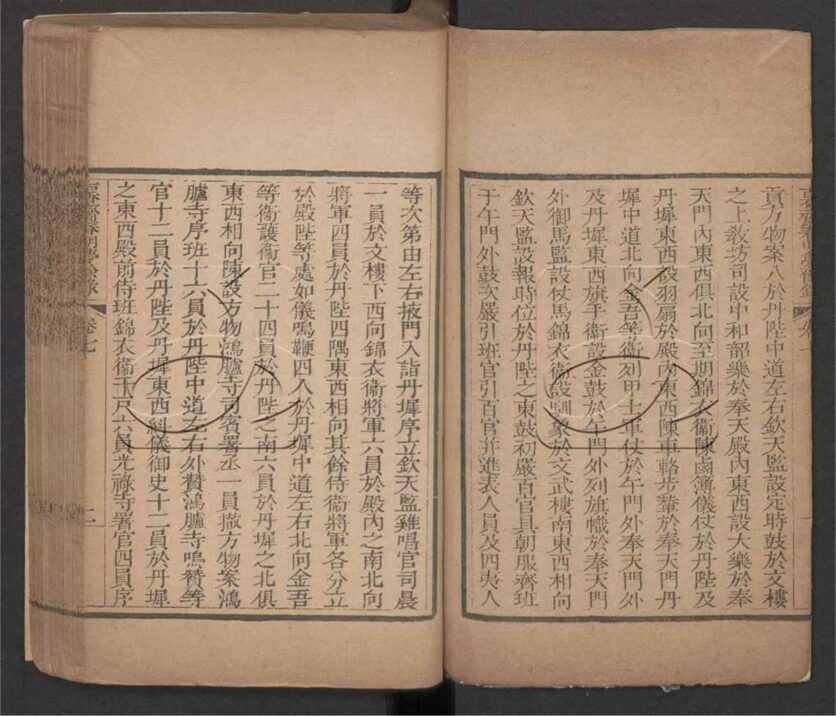 貢方物案八於丹陛中道左右欽天監設定時鼓於文樓
之上教坊司設中和韶樂於奉天殿內東西設大樂於奉
天門內東西俱北向至期錦衣衞陳鹵簿儀仗於丹陛及
丹墀東西設羽扇於殿內東西陳車輅步輦於奉天門丹
墀中道北向金吾等衞列甲士軍仗於午門外奉天門外
及丹墀東西旗手衞設金鼓於午門外列旗幟於奉天門
外御馬監設仗馬錦衣衞設馴象於文武樓南東西相向
欽天監設報時位於丹陛之東鼓初嚴百官具朝服齊班
于午門外鼓次嚴引班官引百官并進表人員及四夷人
等次第由左右掖門入詣丹墀序立欽天監雞唱官司晨
一員於文樓下西向錦衣衞將軍六員於殿內之南北向
將軍四員於丹陛四隅東西相向其餘侍衞將軍各分立
於殿陛等處如儀鳴鞭四人於丹墀中道左右北向金吾
等衞護衞官二十四員於丹陛之南六員於丹墀之北俱
東西相向陳設方物鴻臚寺司賓署丞一員撤方物案鴻
臚寺序班十六員於丹陛中道左右外贊鴻臚寺鳴贊等
官十二員於丹陛及丹墀東西糾儀御史十二員於丹墀
之東西殿前侍班錦衣衞千戶六員光祿寺署官四員序
卷七